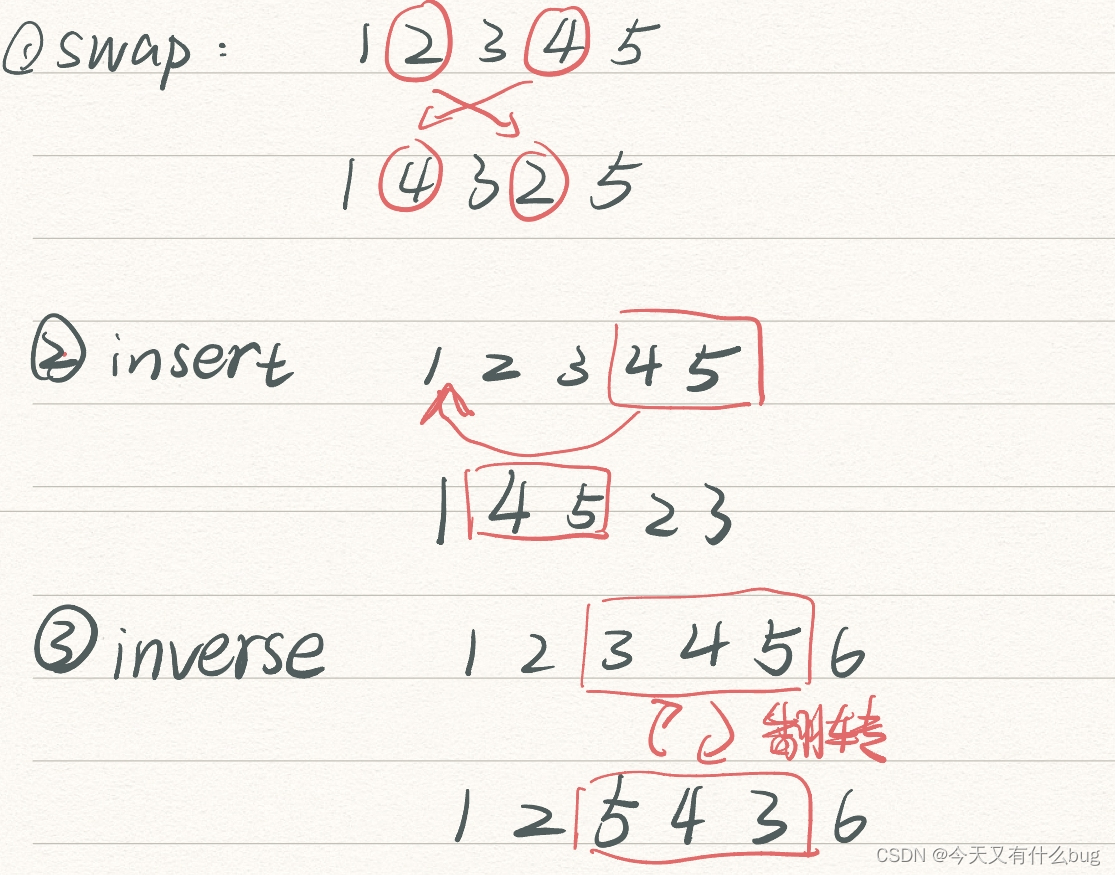 ① swap : 1 2 3 4 5
1 4 3 2 5
② insert 1 2 3 4 5
1 4 5 2 3
③ inverse 1 2 3 4 5 6
翻转
1 2 5 4 3 6
CSDN @今天又有什么bug